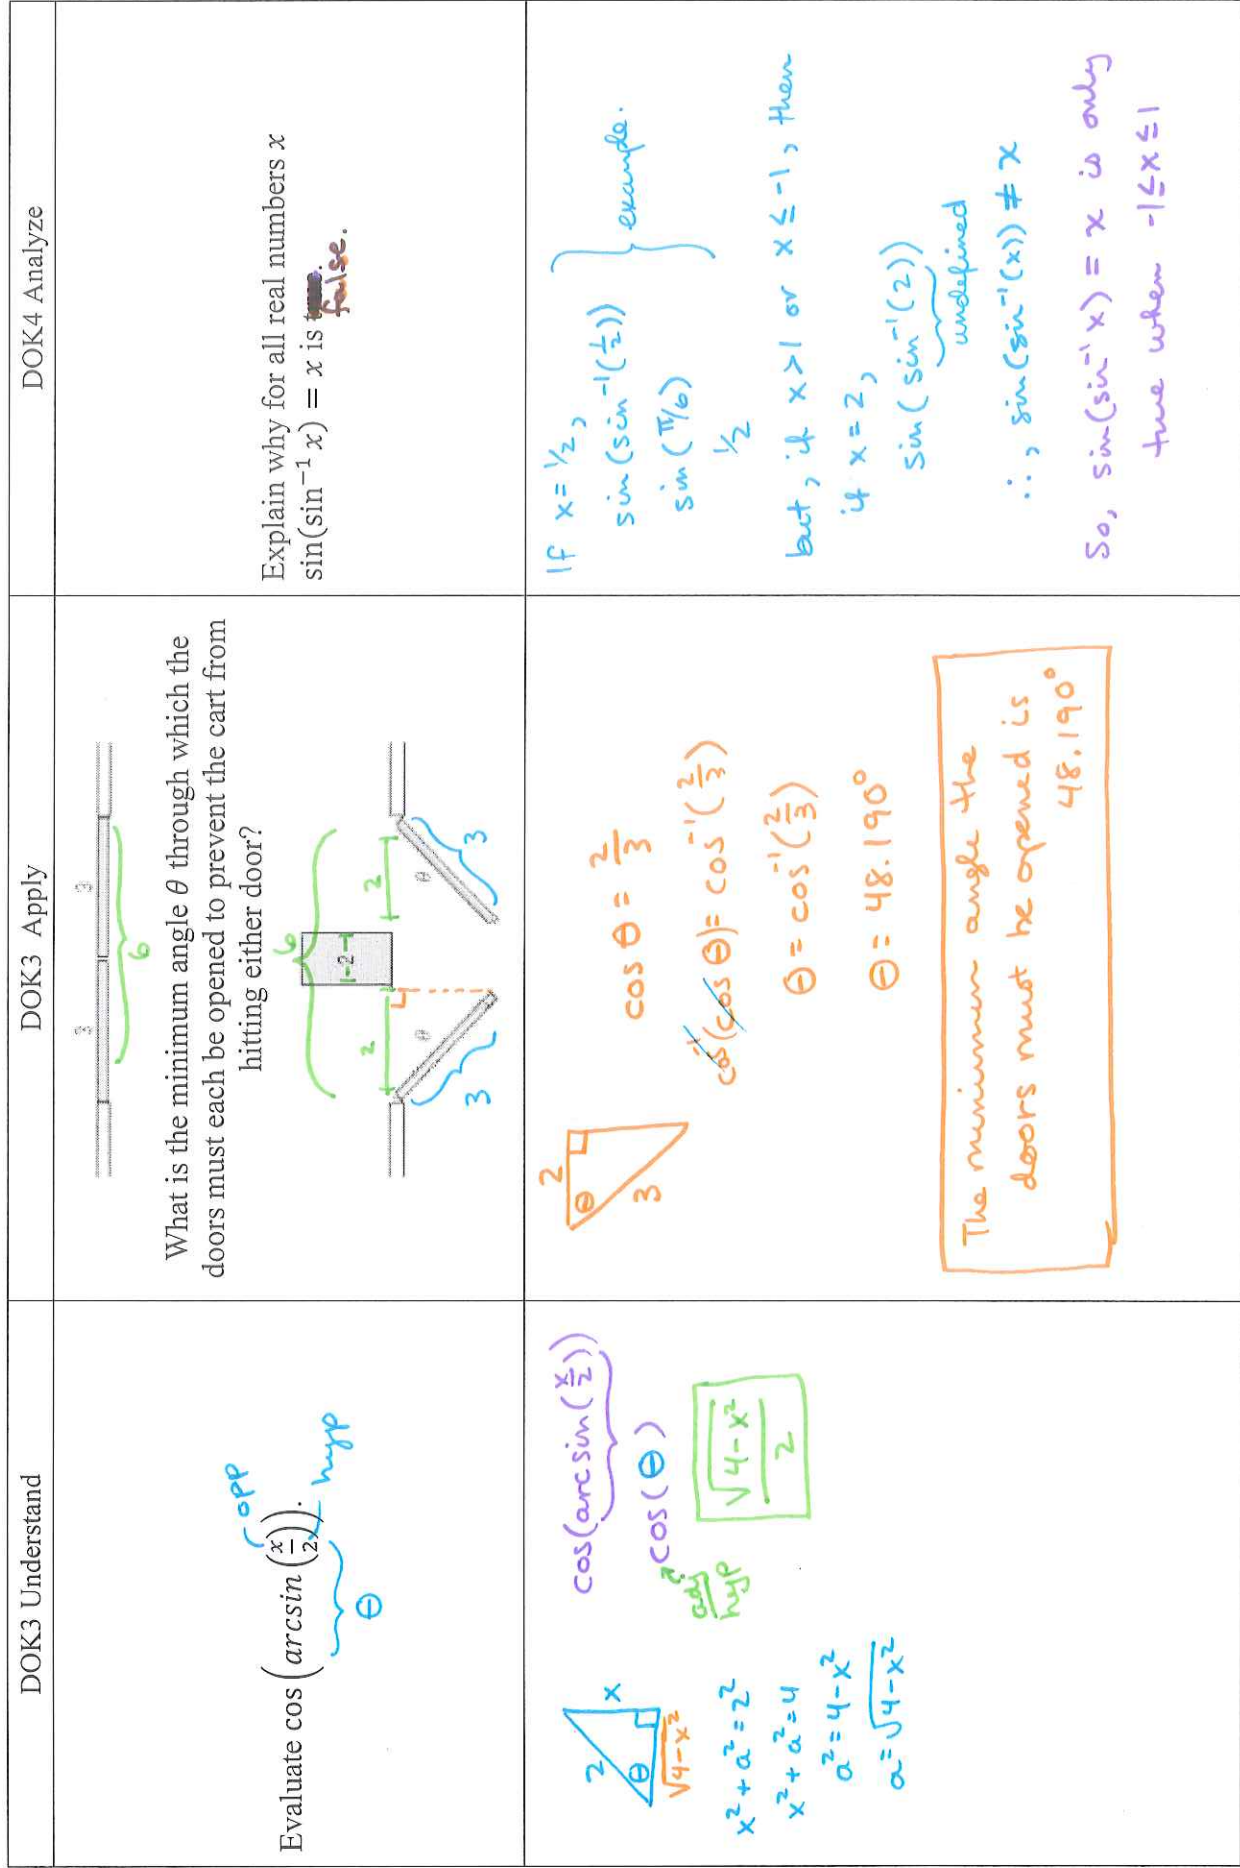 DOK3 Understand
Evaluate cos (arcsin (x/2)).
opp
hyp
θ
2
x
θ
√4-x²
x² + a² = 2²
x² + a² = 4
a² = 4-x²
a = √4-x²
cos(arcsin(x/2))
cos(θ)
adj/hyp
√4-x²/2
DOK3 Apply
3 3
6
What is the minimum angle θ through which the
doors must each be opened to prevent the cart from
hitting either door?
6
2 |-2-| 2
θ θ
3 3
2
θ
3
cos θ = 2/3
cos⁻¹(cos θ) = cos⁻¹(2/3)
θ = cos⁻¹(2/3)
θ = 48.190°
The minimum angle the
doors must be opened is
48.190°
DOK4 Analyze
Explain why for all real numbers x
sin(sin⁻¹ x) = x is
false.
If x = 1/2,
sin(sin⁻¹(1/2))
sin(π/6)
1/2
example.
but, if x > 1 or x ≤ -1, then
if x = 2,
sin(sin⁻¹(2))
undefined
∴, sin(sin⁻¹(x)) ≠ x
So, sin(sin⁻¹x) = x is only
true when -1≤x≤1